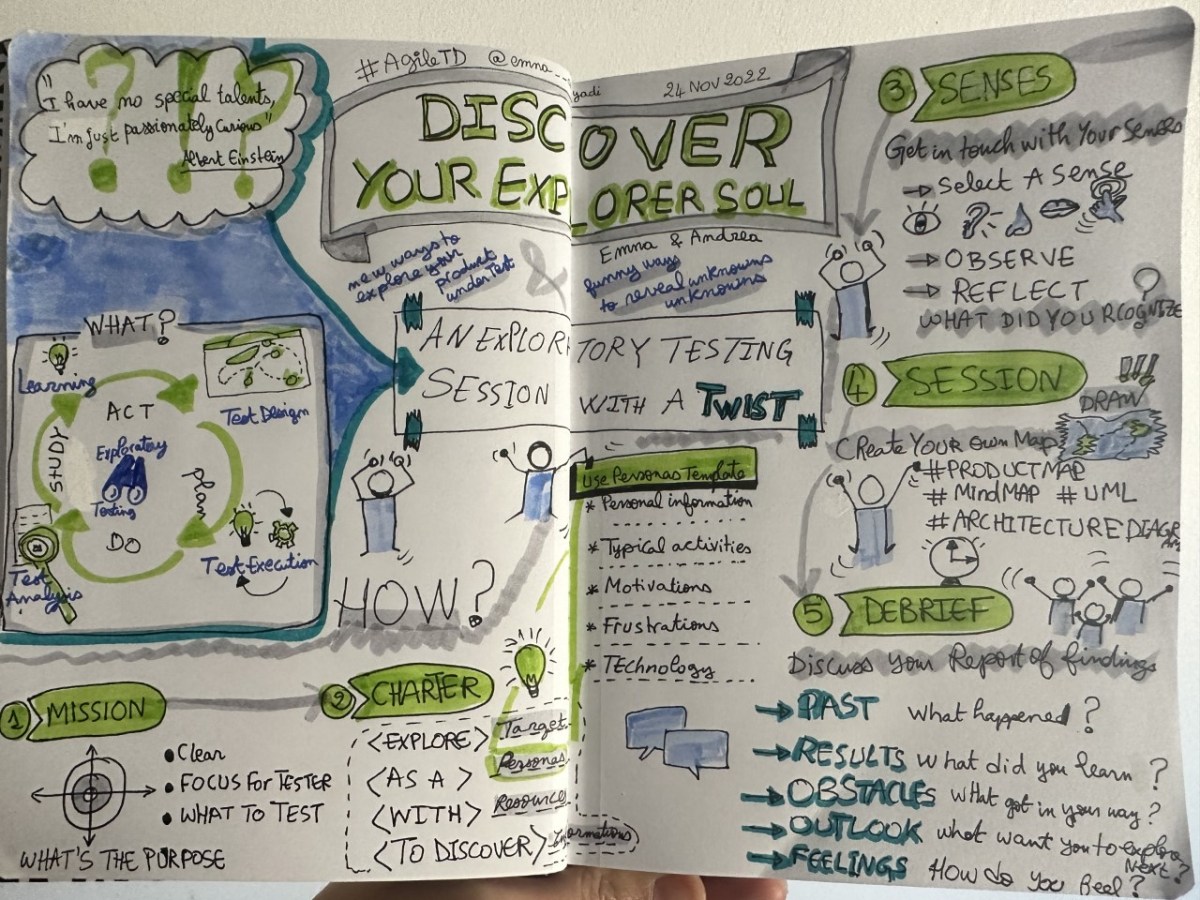 "I have no special talents,
I'm just passionately curious"
Albert Einstein
#AgileTD @emna__
yadi
24 NOV 2022
DISCOVER
YOUR EXPLORER SOUL
Emna & Andrea
new ways to
explore your
product
under Test
&
funny way
to reveal unknowns
unknowns
AN EXPLORTORY TESTING
SESSION WITH A TWIST
WHAT?
Learning
ACT
Test Design
STUDY
Exploratory
Testing
plan
DO
Test Execution
Test
Analysis
HOW?
1 MISSION
• Clear
• FOCUS FOR TESTER
• WHAT TO TEST
WHAT'S THE PURPOSE
2 CHARTER
<EXPLORE> Target
<AS A > Personas
<WITH> Resources
<TO DISCOVER> Informations
Use Personas Template
* Personal information
* Typical activities
* Motivations
* Frustrations
* TEchnology
3 SENSES
Get in touch with Your Senses
→ Select A Sense
→ OBSERVE
→ REFLECT
WHAT DID YOU RCOGNIZE ?
4 SESSION !!!
DRAW
CREATE YOUR OWN MAP
#PRODUCTMAP
# MindMAP # UML
#ARCHITECTURE DIAGRAM
5 DEBRIEF
Discuss your Report of findings
→ PAST What happened ?
→ RESULTS What did you learn ?
→ OBSTACLES What got in your way ?
→ OUTLOOK what want you to explore
Next ?
→ FEELINGS How do you feel ?